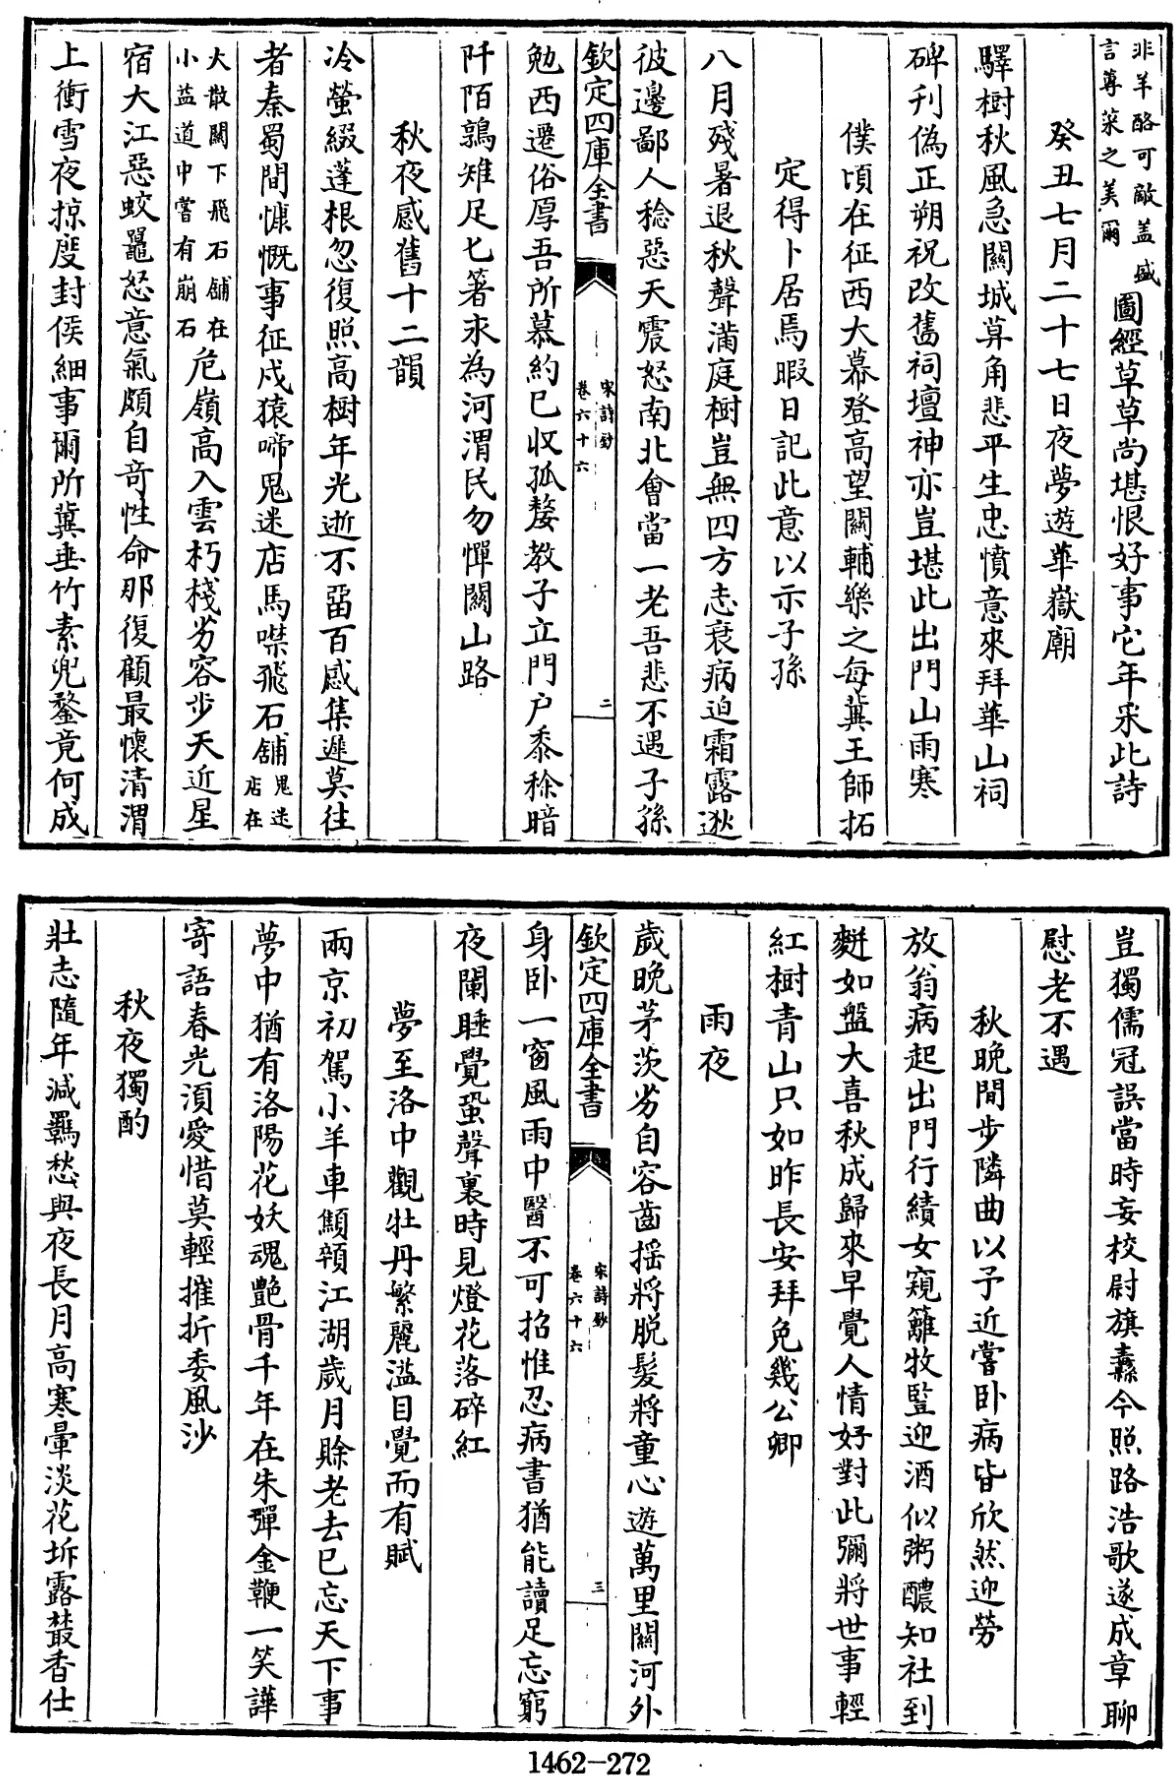 非羊酪可敵蓋盛
言蓴菜之美爾
圖經草草尚堪恨好事它年采此詩
癸丑七月二十七日夜夢遊華嶽廟
驛樹秋風急關城草角悲平生忠憤意來拜華山祠
碑刊偽正朔祝改舊祠壇神亦豈堪此出門山雨寒
僕頃在征西大幕登高望關輔樂之每冀王師拓
定得卜居焉暇日記此意以示子孫
八月殘暑退秋聲滿庭樹豈無四方志衰病迫霜露逖
彼邊鄙人稔惡天震怒南北會當一老吾悲不遇子孫
欽定四庫全書
宋詩鈔
卷六十六
二
勉西遷俗厚吾所慕約已收孤嫠教子立門户黍稌暗
阡陌鶉雉足匕箸永為河渭民勿憚關山路
秋夜感舊十二韻
冷螢綴蓬根忽復照高樹年光逝不畱百感集遲莫往
者秦蜀間慷慨事征戍猿啼鬼迷店馬噤飛石舖
鬼迷
店在
大散關下飛石舖在
小益道中嘗有崩石
危嶺高入雲朽棧劣容步天近星
宿大江惡蛟鼉怒意氣頗自奇性命那復顧最懷清渭
上衝雪夜掠度封侯細事爾所冀垂竹素兜鍪竟何成
豈獨儒冠誤當時妄校尉旗纛今照路浩歌遂成章聊
慰老不遇
秋晚閒步隣曲以予近嘗卧病皆欣然迎勞
放翁病起出門行績女窺籬牧豎迎酒似粥醲知社到
麪如盤大喜秋成歸來早覺人情好對此彌將世事輕
紅樹青山只如昨長安拜免幾公卿
雨夜
歲晚茅茨劣自容齒揺將脱髮將童心遊萬里關河外
欽定四庫全書
宋詩鈔
卷六十六
三
身卧一窗風雨中醫不可招惟忍病書猶能讀足忘窮
夜闌睡覺蛩聲裏時見燈花落碎紅
夢至洛中觀牡丹繁麗溢目覺而有賦
兩京初駕小羊車顦顇江湖歲月賒老去已忘天下事
夢中猶有洛陽花妖魂艶骨千年在朱彈金鞭一笑譁
寄語春光湏愛惜莫輕摧折委風沙
秋夜獨酌
壯志隨年減羈愁與夜長月高寒暈淡花坼露叢香仕
1462-272